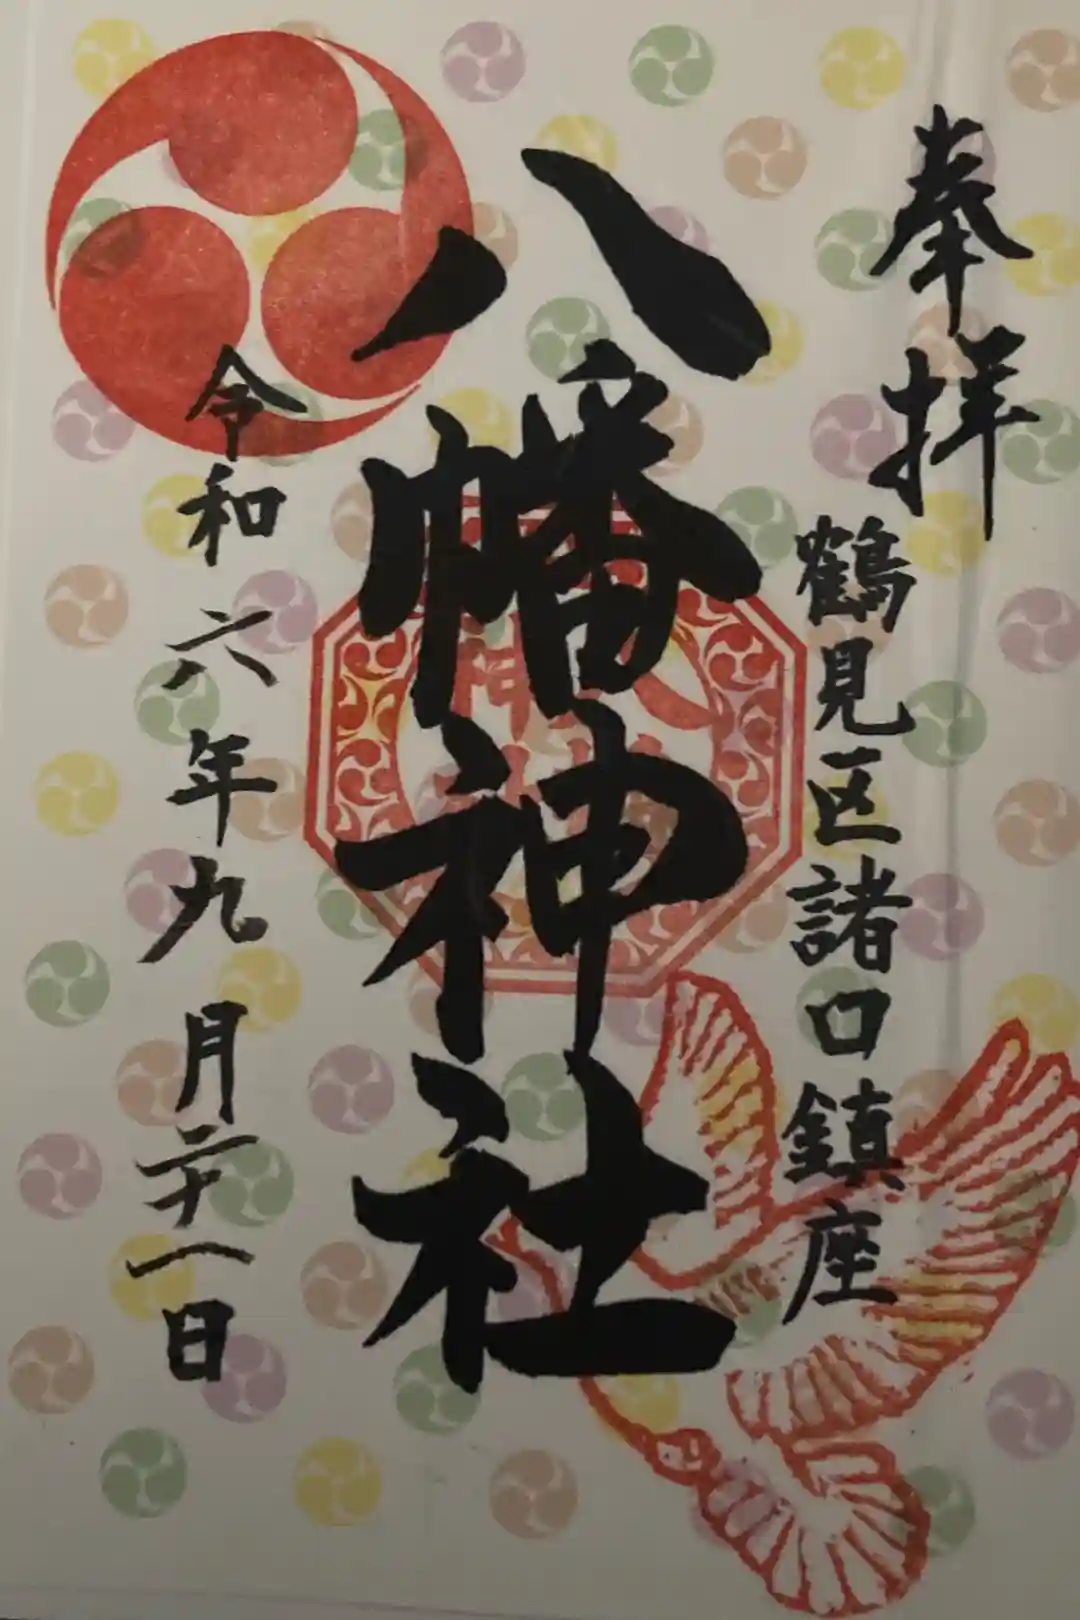 奉拝
鶴見区諸口鎮座
八幡神社
令和六年九月二十一日